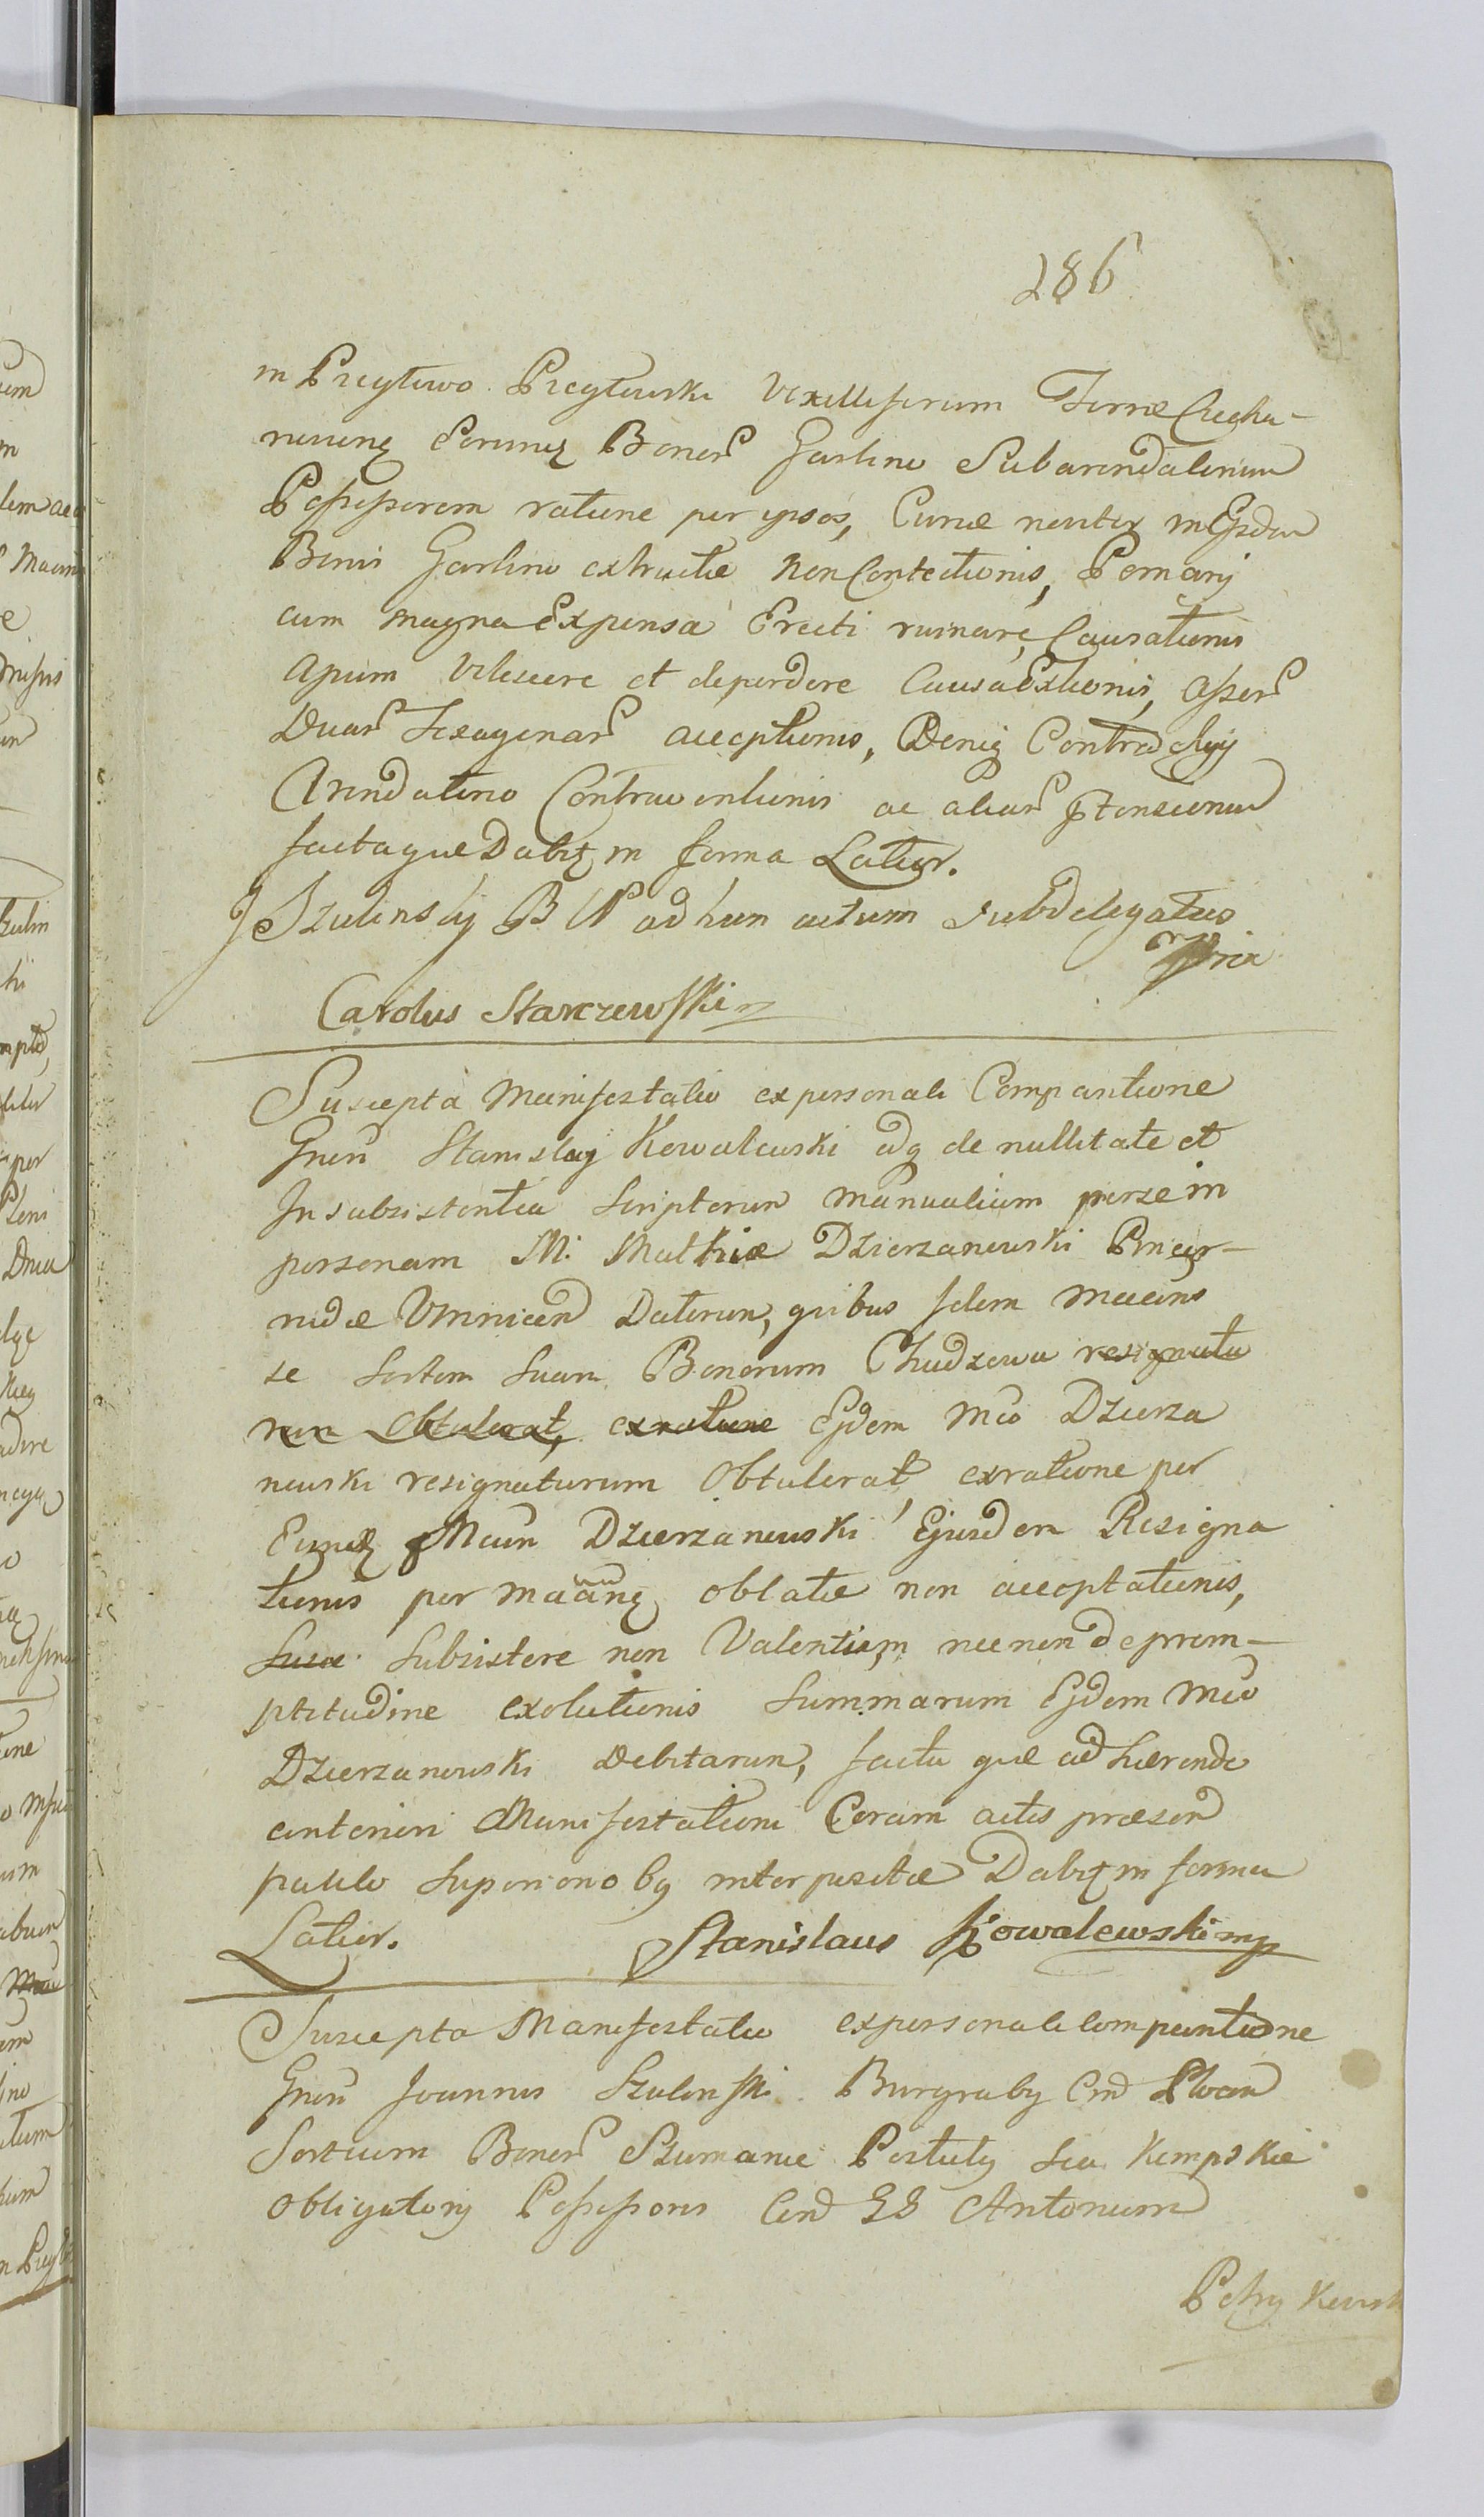 286
in Przytowo Przytowski Vexilliferum Terræ Ciecha-
novieñ Eorumq Bonorꝝ Garlino Subarendatorium
Possessorem ratione per ipsos, Curiæ noviter in Ejsdem
Bonis Garlino extructæ non Contectionis, Pomarij
cum magna Expensa Erecti ruinare, Causationis
Apum vilescere et deperdere Causationis, Asserꝝ
Duarꝝ Sexagenarꝝ acceptionis, Deniq Contractuij
Arendatorio Contraventionis ac aliarꝝ ptensionum
facta quæ Dabitꝫ in forma Latior.
J Szulinskij B N ad hun actum subdelegatus
Carolus Starczewski
Suscepta Manifestatio ex personali Comparitione
Gñsi Stanislaij Kowalewski adq de nullitate et
Insubsistentia Scriptorum manualium per se in
personam M. Mathiæ Dzierzanowski Pincer-
nidæ Datorum, quibus idem
se sortem suam Bonorum Chudzowo resignatu
rum Obtulerat, exratione Ejdem Mco Dzierza
nowski resignaturum Obtulerat, exratione per
Eundem Mcum Dzierzanowski Ejusdem Resigna
tionis per oblatæ non acceptationis,
suæ Subsistere non Valentium, necnon de prom-
ptitudine exolutionis summarum Ejdem Mco
Dzierzanowski Debitarum, facta quæ ad hærendo
anteriori Manifestationi Coram actis præsen
paulo superiori interpositæ Dabitꝫ in forma
Latior. Stanislaus Kowalewski mp
Suscepta Manifestatio ex personali Comparitione
Gñsi Joannis Szulinski Burgrabij
Sortium Bonorꝝ Szumanie Pustuły seu Kempskie
Obligatorij Possessoris GG Antonium